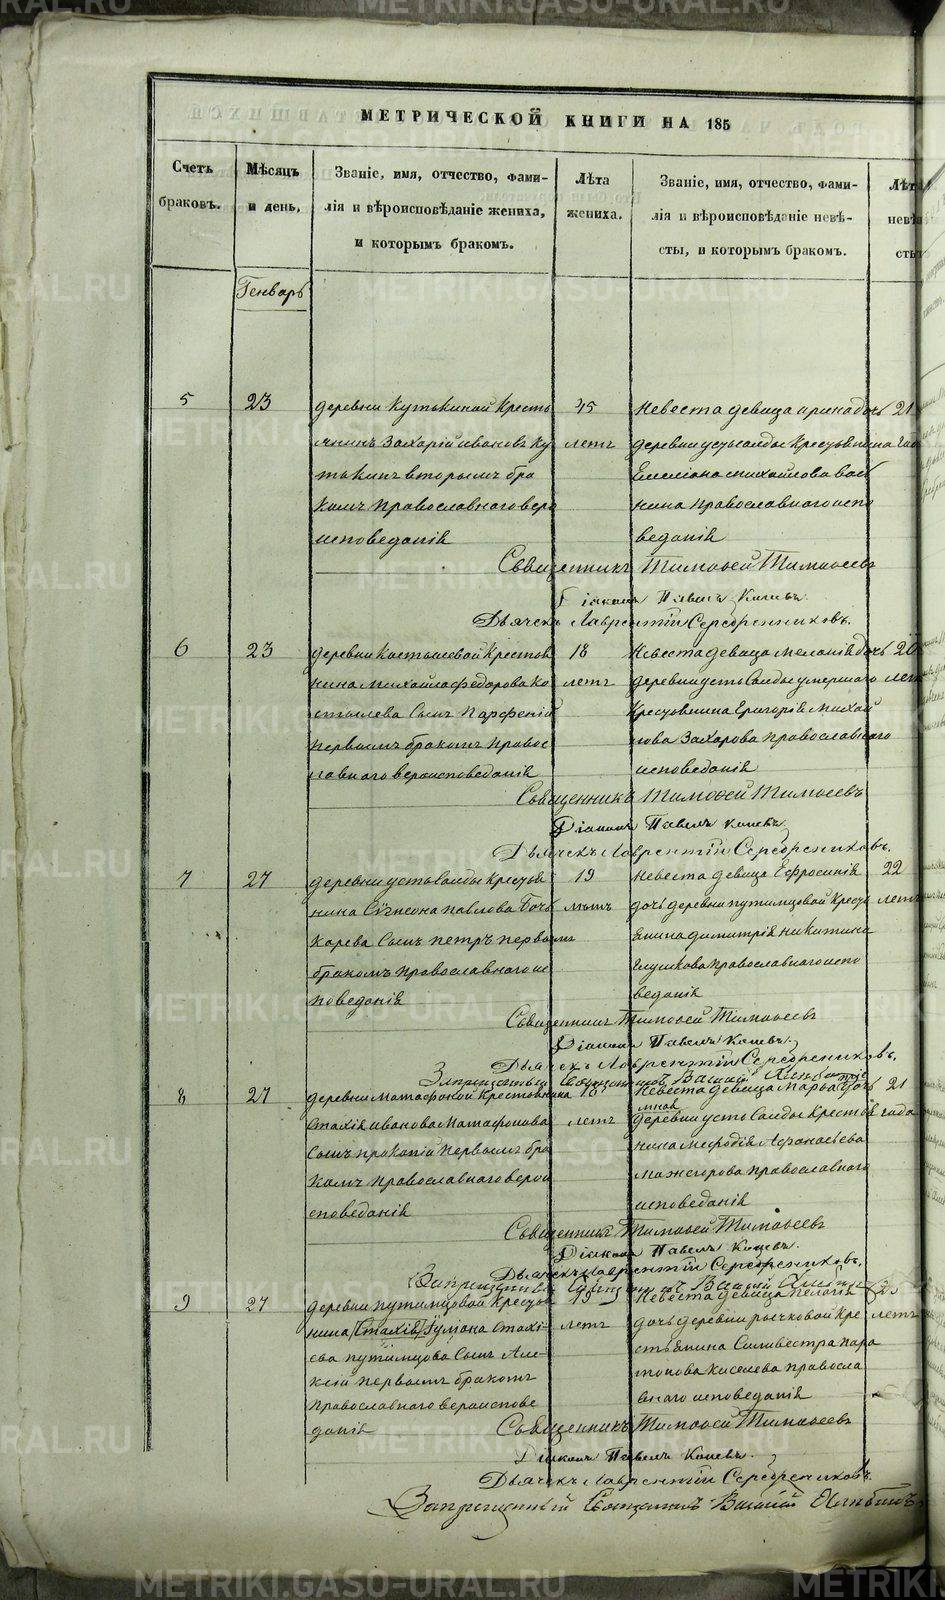 МЕТРИЧЕСКОЙ КНИГИ НА 185
Счетъ браковъ.
Мѣсяцъ и день.
Званіе, имя, отчество, фами-
лія и вѣроисповѣданіе жениха,
и которымъ бракомъ.
Лѣта
жениха.
Званіе, имя, отчество, фами-
лія и вѣроисповѣданіе невѣ-
сты, и которымъ бракомъ.
Лѣта
невѣ
сты
Генварь
5
23
деревни Кутькиной Кресть
янинъ Захарій Ивановъ Ку
тькинъ вторымъ бра
комъ православнаго веро
исповеданія
45
летъ
Невеста девица Арина дочь
деревни усть салды Крестьянина
Емелiона михайлова
нина православнаго испо
веданія
21
года
Священникъ Тимофей Тимофеевъ
Діаконъ Павелъ
Дьячекъ Лаврентій Серебренниковъ.
6
23
деревни Костылевой Крестья
нина Михайла Федорова Ко
стылева Сынъ Парфеній
первымъ бракомъ правос
лавнаго вероисповеданія
18
летъ
Невеста девица Меланія дочь
деревни усть Салды умершаго
Крестьянина Григорія Михай
лова Захарова православнаго
исповеданія
20
летъ
Священникъ Тимофей Тимофеевъ
Діаконъ Павелъ
Дьячекъ Лаврентій Серебрениковъ.
7
27
деревни усть Салды Крестья
нина Сѵмеона Павлова Боч
карева Сынъ петръ первымъ
бракомъ православнаго ис
поведанія
19
летъ
Невеста девица Ефросинія
дочь деревни путимцовой Кресть
янина димитрія никитина
Глушкова православнаго испо
веданія
22
летъ
Священникъ Тимофей Тимофеевъ
Діаконъ Павелъ
Дьячекъ Лаврентій Серебрениковъ.
Запрещенный Священникъ Василій
8
27
деревни Матафоной Крестьянина
Стахія иванова Матафонова
Сынъ прокопій первымъ бра
комъ православнаго верои
споведанія
18
летъ
Невеста девица Марья дочь
деревни усть Салды Крестья
нина Мефодія Афонасьева
православнаго
исповеданія
21
года
Священникъ Тимофей Тимофеевъ
Діаконъ Павелъ
Дьячекъ Лаврентій Серебрениковъ.
Запрещенный Священникъ Василій
9
27
деревни путимцовой Крестья
нина (Стахія) Іуліана Стахі
ева путимцова Сынъ Але
ксій первымъ бракомъ
православнаго вероиспове
данія
19
летъ
Невеста девица Пелагія
дочь деревни рычковой Кре
стьянина Силивестра пара
монова Киселева правосла
внаго исповеданія
летъ
Священникъ Тимофей Тимофеевъ
Діаконъ Павелъ
Дьячекъ Лаврентій Серебрениковъ.
Запрещенный Священникъ Василій
METRIKI.GASO-URAL.RU